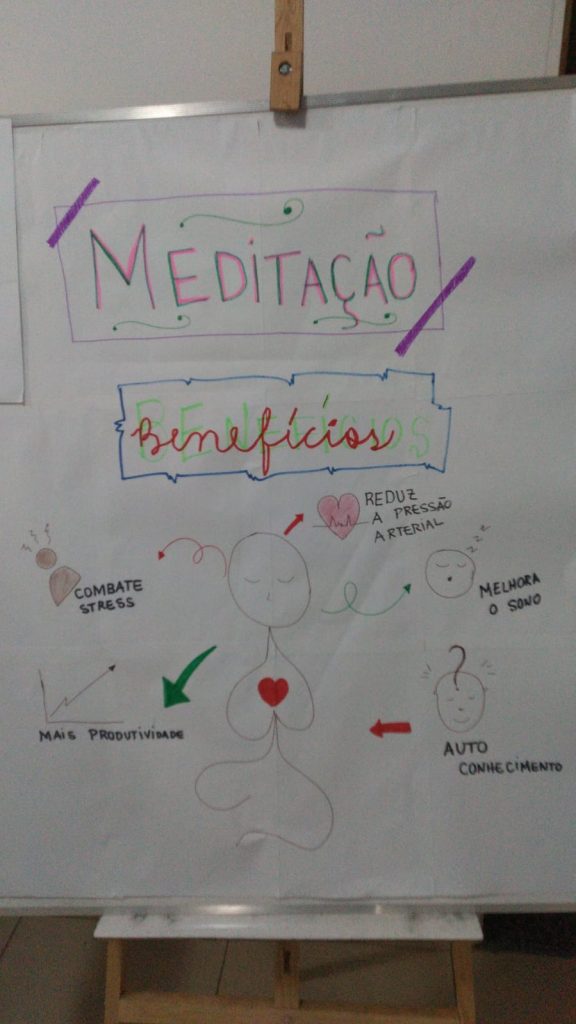 MEDITAÇÃO
BENEFÍCIOS
Benefícios
REDUZ
A PRESSÃO
ARTERIAL
COMBATE
STRESS
MELHORA
O SONO
MAIS PRODUTIVIDADE
AUTO
CONHECIMENTO